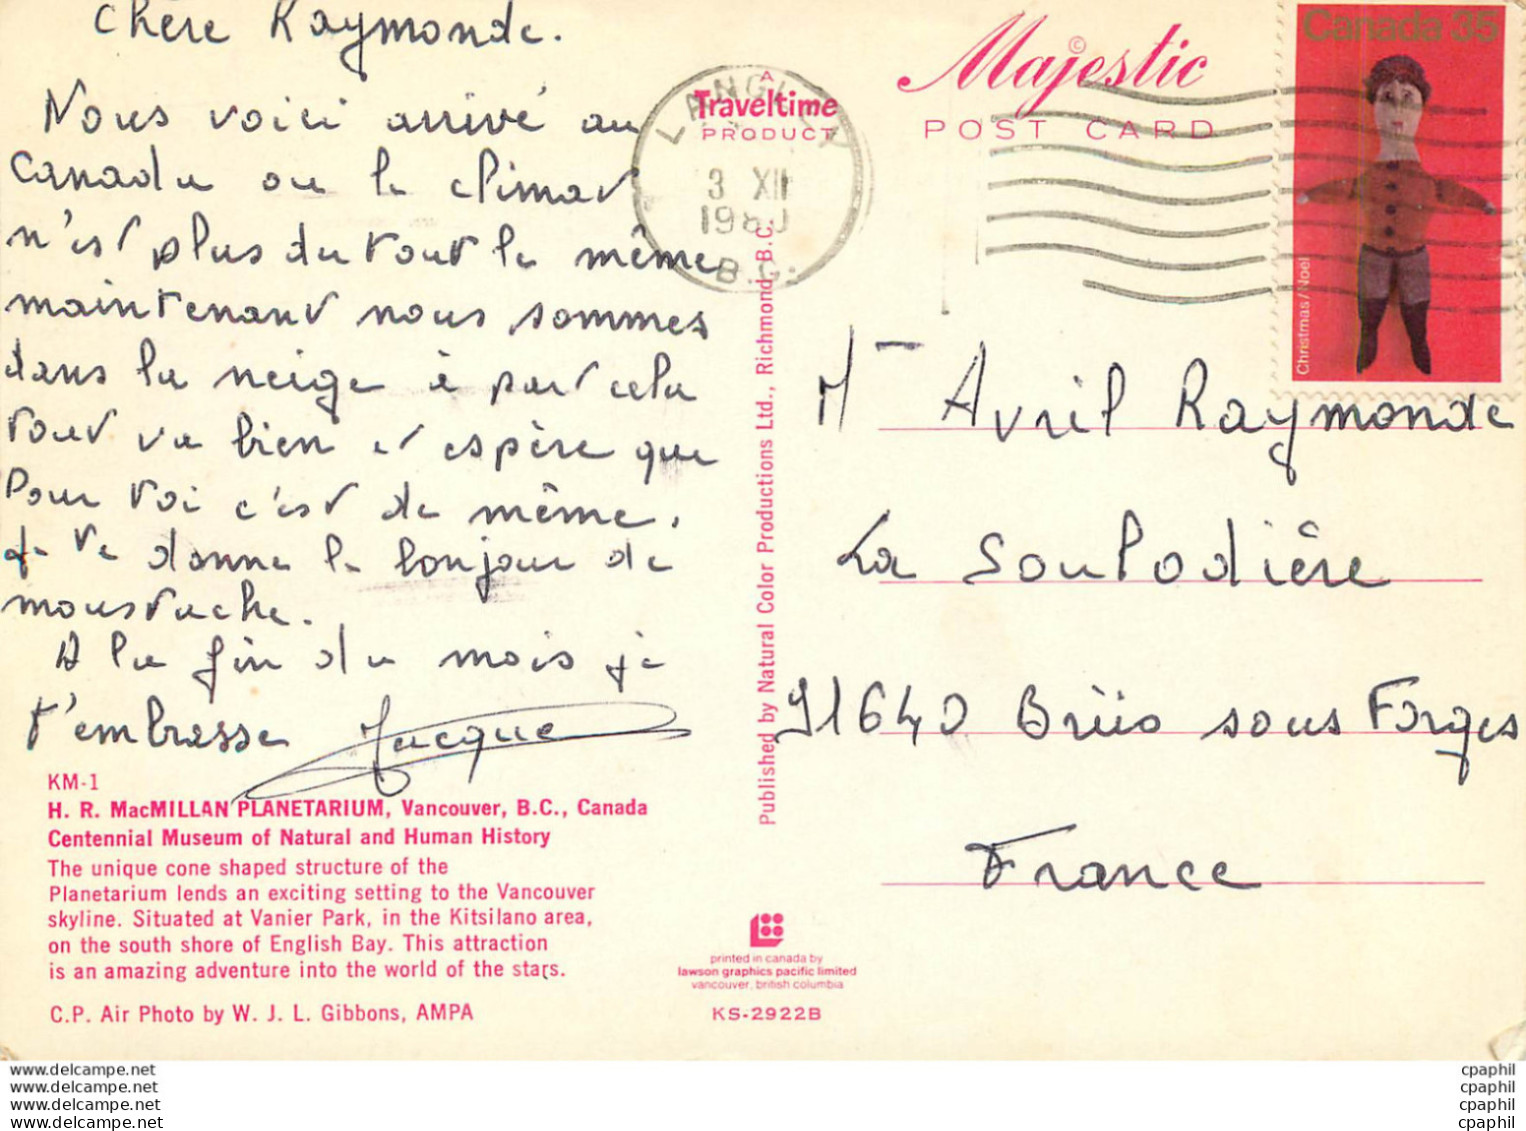 Chère Raymonde.
Nous voici arrivé au
Canada ou le climat
n'est plus du tout le même
maintenant nous sommes
dans la neige à part cela
tout va bien et espère que
Pour toi c'est de même.
Je te donne le bonjour de
moustache.
A la fin du mois je
t'embrasse Jacque
KM-1
H. R. MacMILLAN PLANETARIUM, Vancouver, B.C., Canada
Centennial Museum of Natural and Human History
The unique cone shaped structure of the
Planetarium lends an exciting setting to the Vancouver
skyline. Situated at Vanier Park, in the Kitsilano area,
on the south shore of English Bay. This attraction
is an amazing adventure into the world of the stars.
C.P. Air Photo by W. J. L. Gibbons, AMPA
A
Traveltime
PRODUCT
LANGLEY
3 XII
1980
B.C.
Published by Natural Color Productions Ltd., Richmond, B.C.
printed in canada by
lawson graphics pacific limited
vancouver, british columbia
KS-2922B
Majestic ©
POST CARD
Canada 35
Christmas/Noël
Me Avril Raymonde
La Soulodière
91640 Briis sous Forges
France
www.delcampe.net
www.delcampe.net
www.delcampe.net
www.delcampe.net
cpaphil
cpaphil
cpaphil
cpaphil